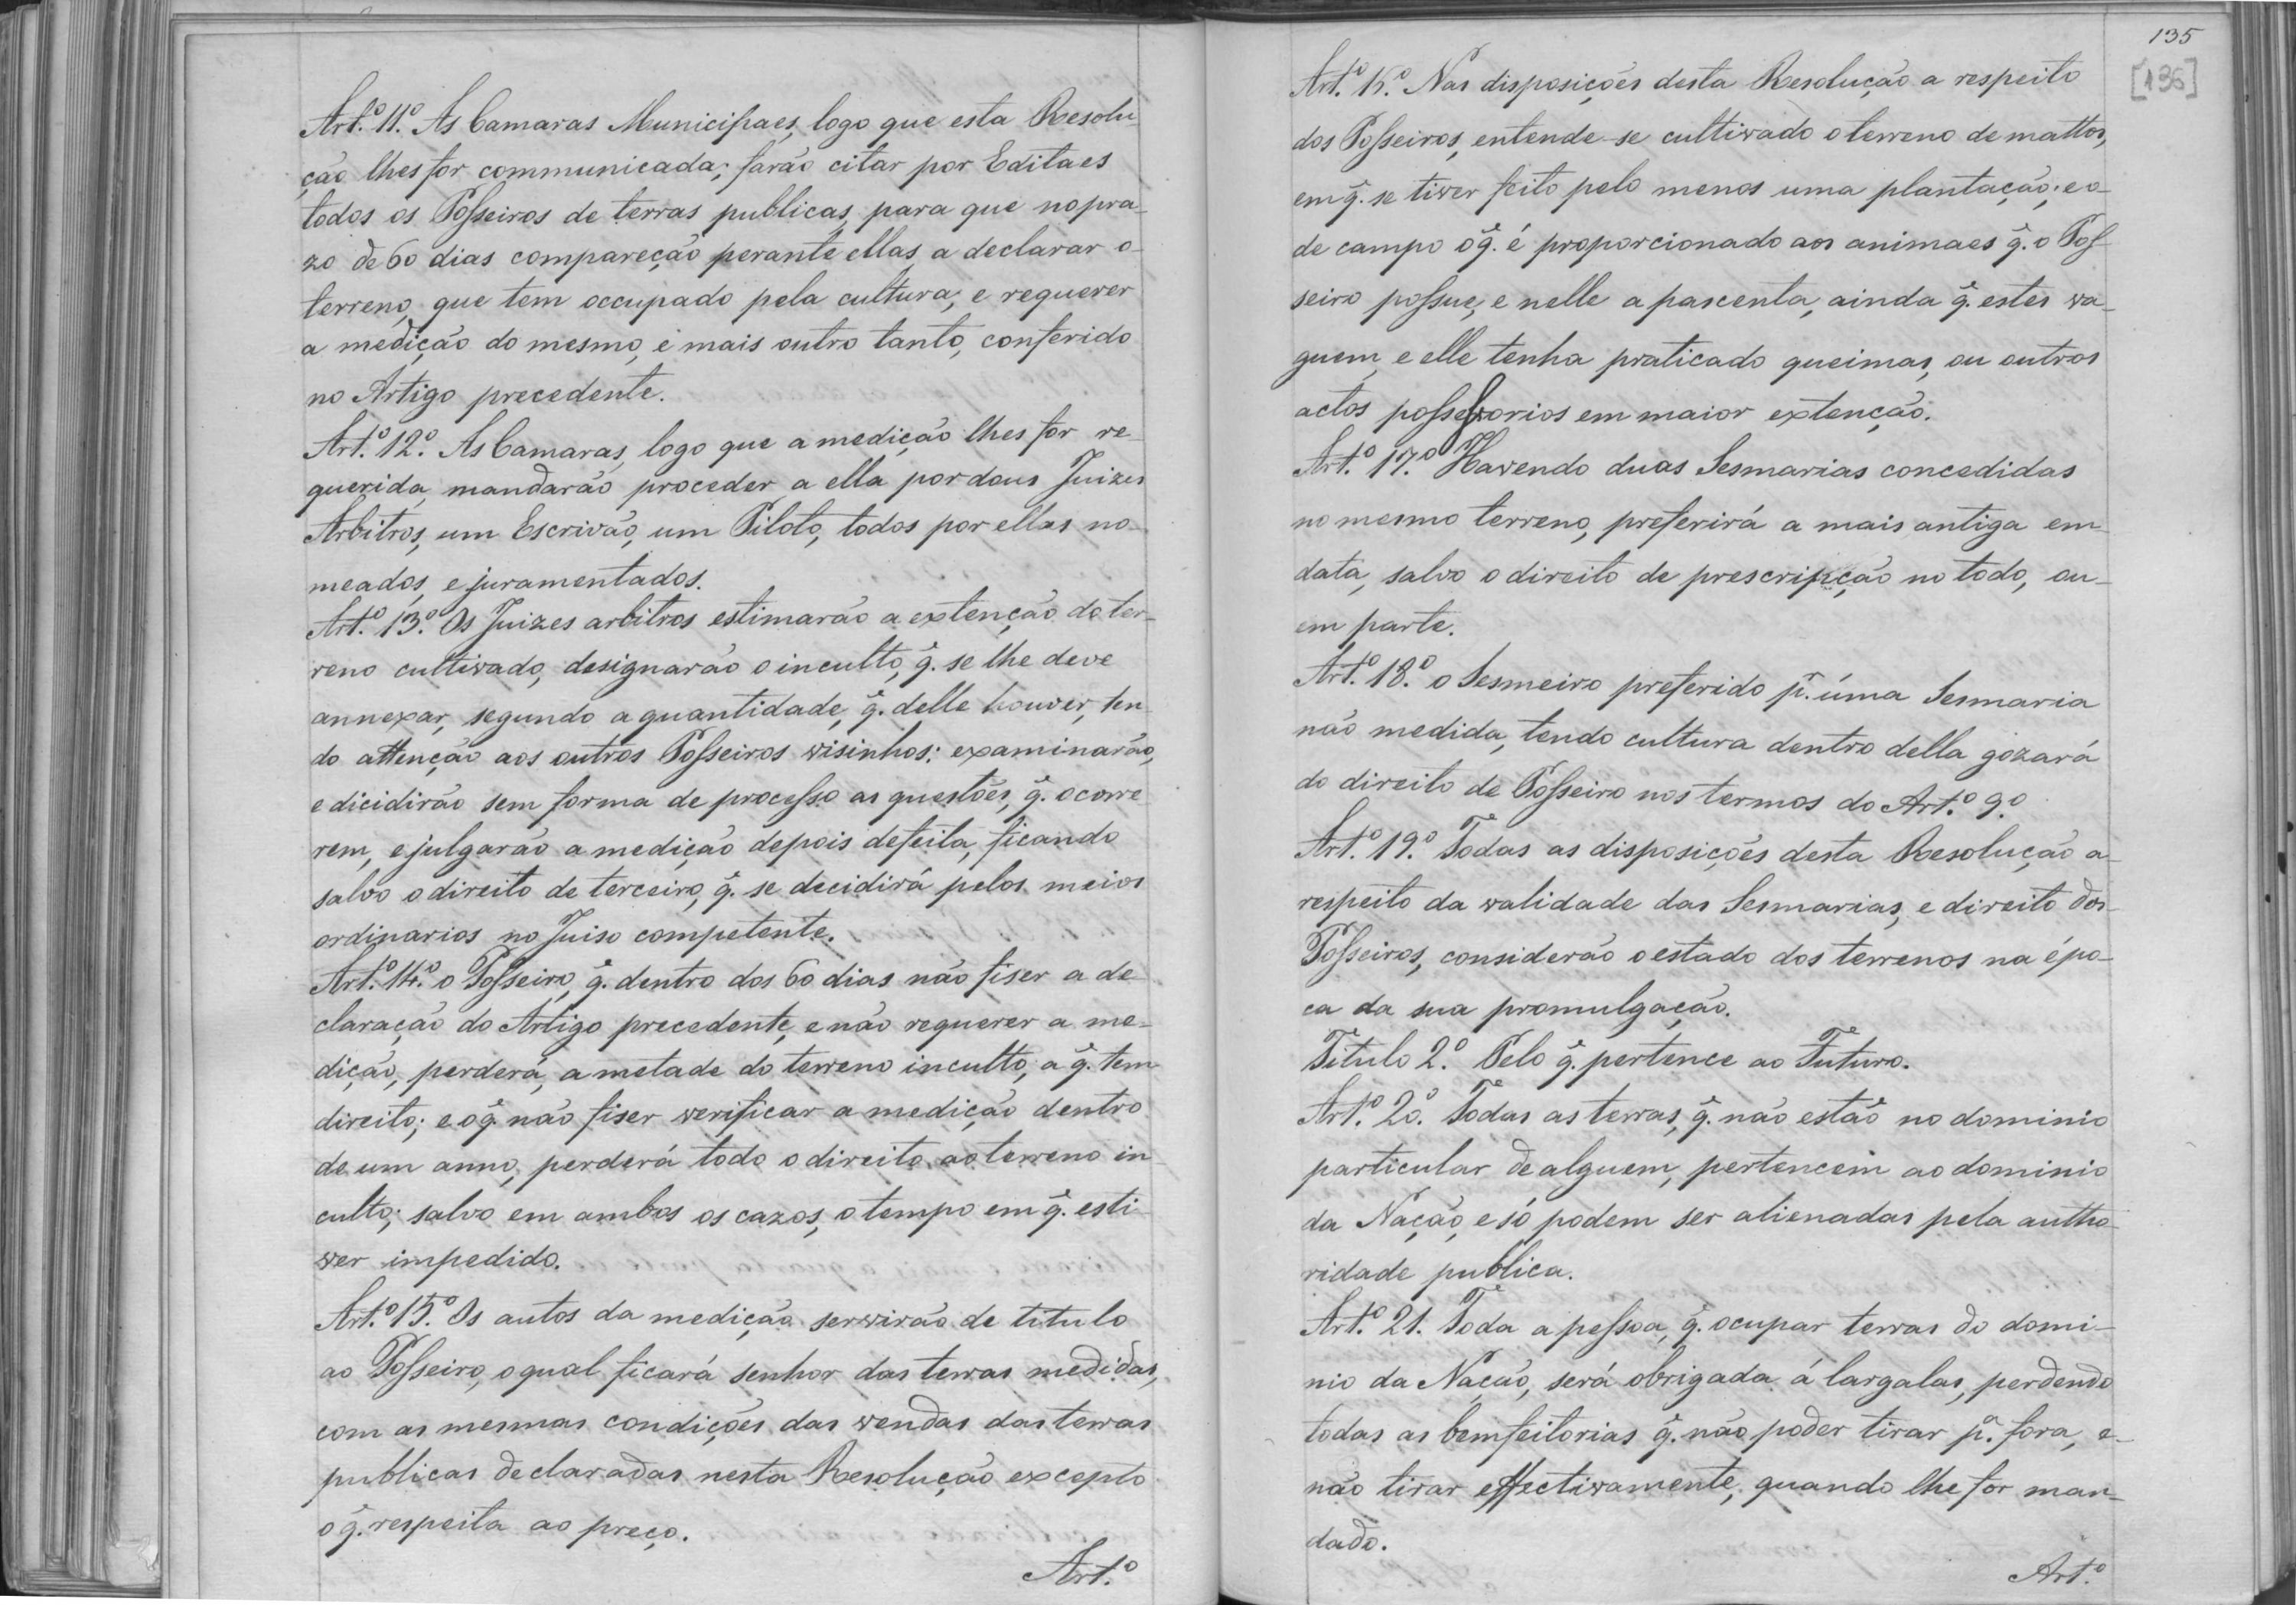 Art.º 11.º As Camaras Municipaes, logo que esta Resolu-
ção lhes for communicada; farão citar por Editaes
todos os Posseiros de terras publicas, para que no pra-
zo de 60 dias compareção perante ellas, a declarar o-
terreno, que tem occupado pela cultura, e requerer
a medição do mesmo, e mais outro tanto, conferido
no Artigo precedente.
Art.º 12.º As Camaras, logo que a medição lhes for re-
querida, mandarão proceder a ella por dous Juizes
Arbitros, um Escrivão, um Piloto, todos por ellas no-
meados, e juramentados.
Art.º 13.º Os Juizes arbitros estimarão a extenção do ter-
reno cultivado, designarão o inculto, q̃. se lhe deve
annexar, segundo a quantidade, q̃. delle houver, ten-
do attenção aos outros Posseiros visinhos: examinarão,
e dicidirão sem forma de processo as questões, q̃. ocorre-
rem, e julgarão a medição depois de feita, ficando
salvo o direito de terceiro, q̃. se decidirá pelos meios
ordinarios no Juiso competente.
Art.º 14.º o Posseiro, q̃. dentro dos 60 dias não fiser a de-
claração do Artigo precedente, e não requerer a me-
dição, perderá, a metade do terreno inculto, a q̃. tem
direito; e o q̃. não fiser verificar a medição dentro
de um anno, perderá todo o direito ao terreno in-
culto; salvo em ambos os cazos, o tempo em q̃. esti-
ver impedido.
Art.º 15.º Os autos da medição servirão de titulo
ao Posseiro, o qual ficará senhor das terras medidas,
com as mesmas condições das vendas das terras
publicas declaradas nesta Resolução excepto
o q̃. respeita ao preço.
Art.º
135
[136]
Art.º 16.º Nas disposições desta Resolução a respeito
dos Posseiros, entende-se cultivado o terreno de mattos,
em q̃. se tiver feito pelo menos uma plantação; e o-
de campo o q̃. é proporcionado aos animaes q̃. o Pos-
seiro possue, e nelle apascenta, ainda q̃. estes va-
guem, e elle tenha praticado queimas, ou outros
actos possessorios em maior extenção.
Art.º 17.º Havendo duas Sesmarias concedidas
no mesmo terreno, preferirá a mais antiga em-
data, salvo o direito de prescripção no todo, ou-
em parte.
Art.º 18.º o Sesmeiro preferido p.r úma Sesmaria
não medida, tendo cultura dentro della gozará
do direito de Posseiro nos termos do Art.º 9.º
Art.º 19.º Todas as disposições desta Resolução a-
respeito da validade das Sesmarias, e direito dos-
Posseiros, considerão o estado dos terrenos na épo-
ca da sua promulgação.
Titulo 2.º Pelo q̃. pertence ao Futuro.
Art.º 20.º Todas as terras, q̃. não estão no dominio
particular de alguem, pertencem ao dominio
da Nação, e só podem ser alienadas pela autho-
ridade publica.
Art.º 21. Toda a pessoa, q̃. ocupar terras do domi-
nio da Nação, será obrigada á largalas, perdendo
todas as bemfeitorias q̃. não poder tirar p.a fora, e-
não tirar effectivamente, quando lhe for man-
dado.
Art.º